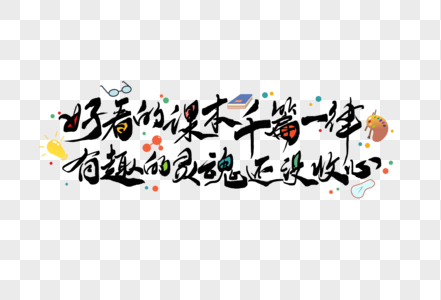 好看的课本千篇一律
有趣的灵魂还没收心